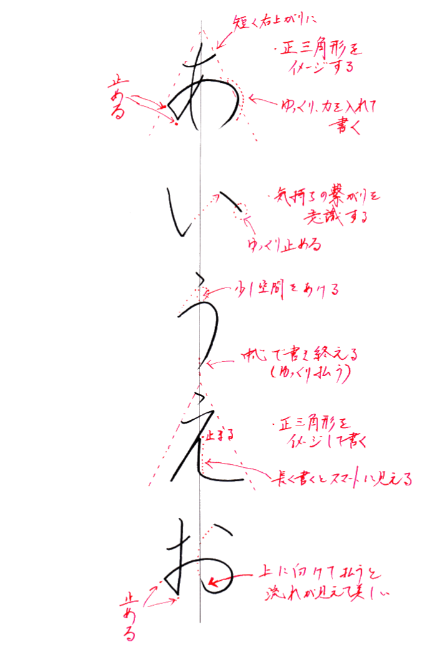 短く右上がりに
・正三角形を
イメージする
あ
止める
ゆっくり、力を入れて
書く
い
・気持ちの繋がりを
意識する
ゆっくり止める
う
少し空間をあける
中心で書き終える
(ゆっくり払う)
え
止まる
・正三角形を
イメージして書く
長く書くとスマートに見える
お
止める
上に向けて払うと
流れが見えて美しい